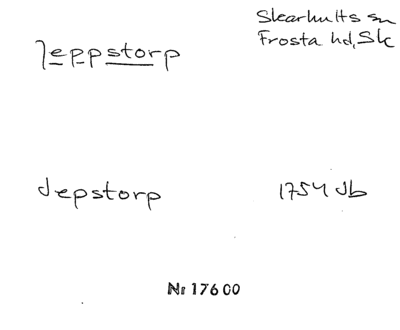 Skearhults sn
Frosta hd, Sk
Jeppstorp
Jepstorp 1754 Jb
Nr 17600